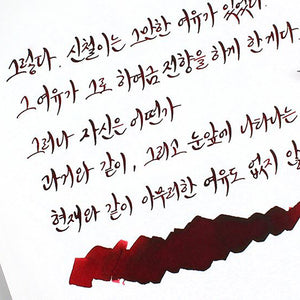 그렇다. 신철이는 그만한 여유가 있었다.
그 여유가 그로 하여금 전향을 하게 한 게다.
그러나 자신은 어떤가
과거와 같이, 그리고 눈앞에 나타나는
현재와 같이 아무러한 여유도 없지 않